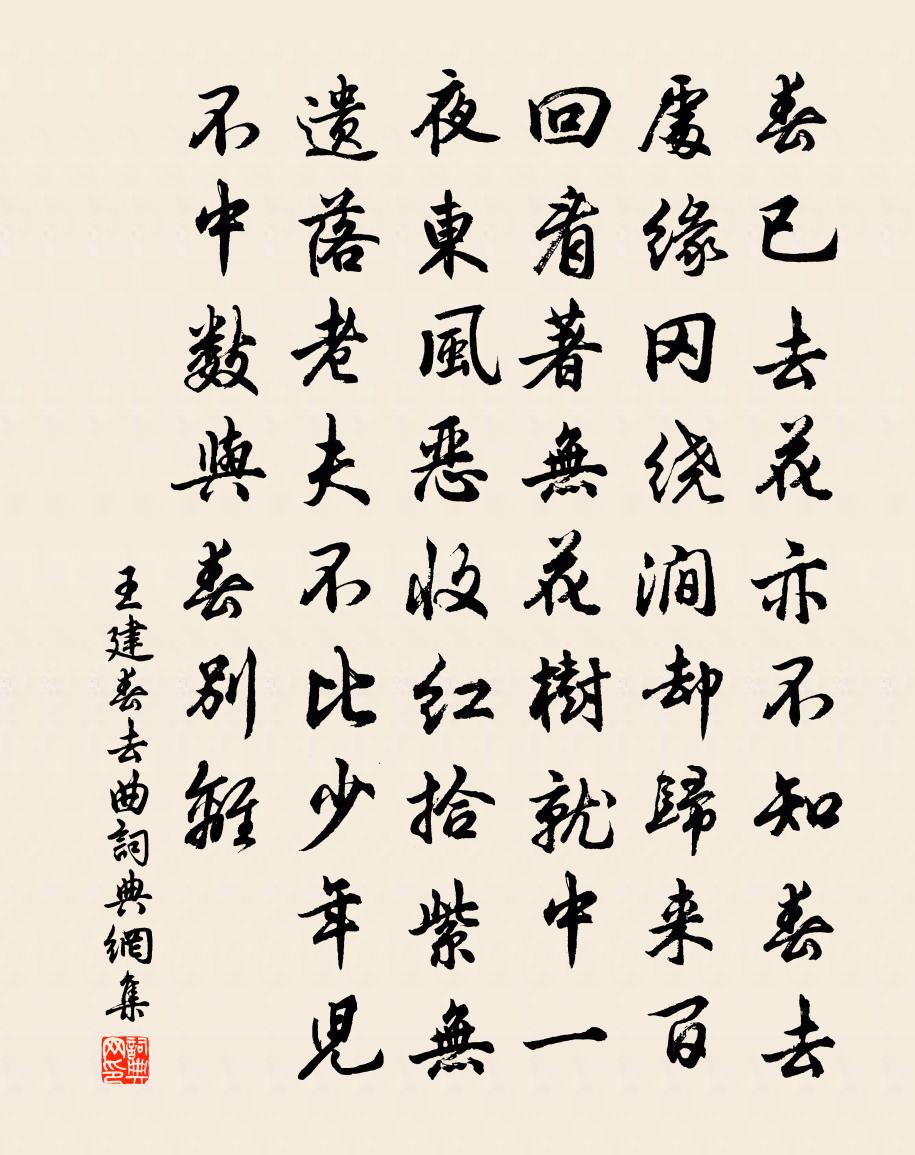 春已去花亦不知春去
處缘冈绕澗却歸来百
回看著無花樹就中一
夜東風恶收红拾紫無
遗落老夫不比少年児
不中數與春别離
王建春去曲詞典網集
詞典网印